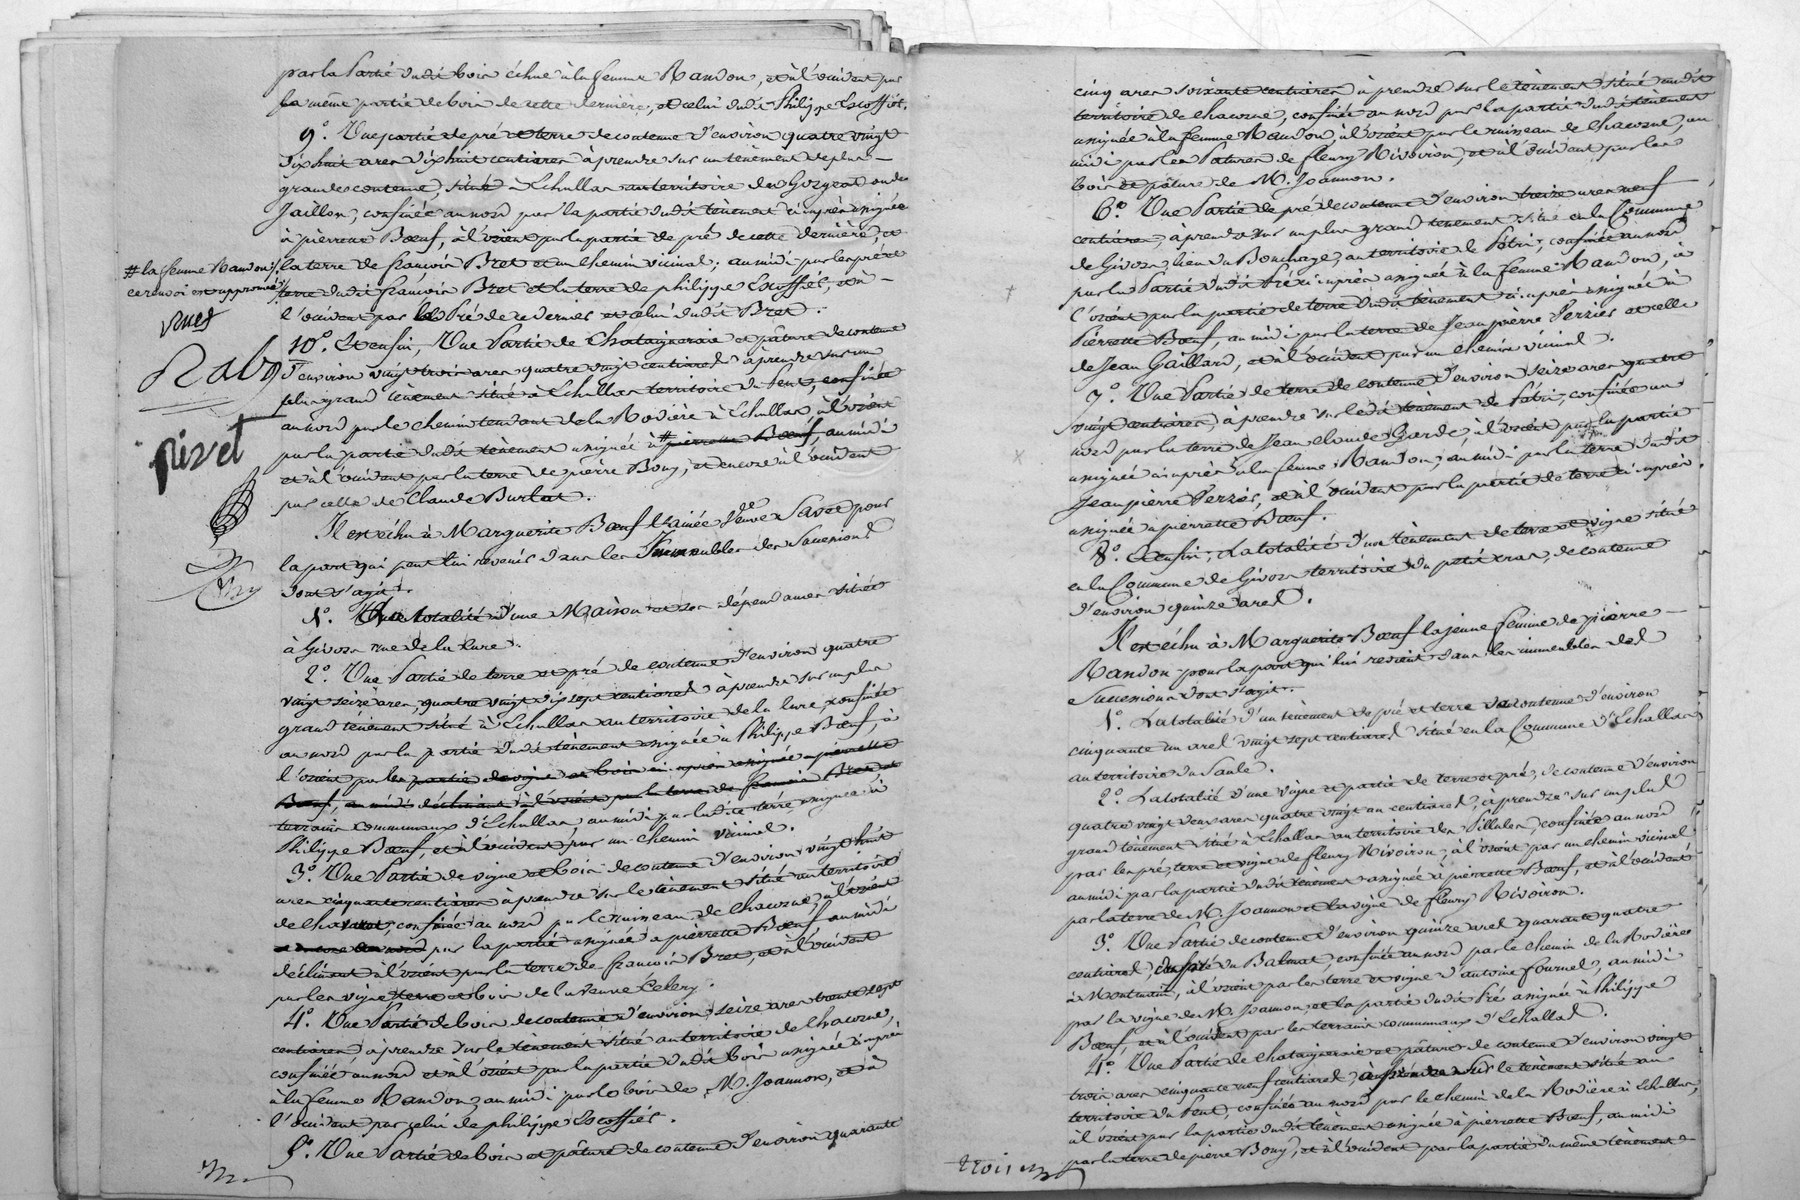 par la Partie dudit bois échue à la femme Randon, et à l'occident par
la même partie de bois de cette dernière, et celui dudit Philippe Escoffier.
9.° Une partie de pré et terre de contenue d'environ quatre vingt
dix huit ares dix huit centiares à prendre sur un tènement de plus
grande contenue, situé à Echallas au territoire du Gorgeat ou du
Jaillon, confinée au nord par la partie dudit tènement ci après assignée
à pierrette Bœuf, à l'orient par la partie de pré de cette dernière, et
la terre de françois Bret et un chemin vicinal; au midi par les pré et
terre dudit françois Bret et la terre de philippe Escoffier, et à
l'occident par le Pré de ce dernier et celui dudit Bret.
# la femme Randon
ce renvoi est approuvé
10.° Et enfin, Une Partie de Chataigneraie et pâture de contenue
d'environ vingt trois ares quatre vingt centiares à prendre sur un
plus grand tènement situé à Echallas territoire du Pent, confinée
au nord par le chemin tendant de la Rodière à Echallas, à l'orient
par la partie dudit tènement assignée à # pierrette Bœuf, au midi
et à l'occident par la terre de pierre Bony, et encore à l'occident
par celle de Claude Burlat.
pivet
Il est échu à Marguerite Bœuf l'ainée Veuve Savet pour
la part qui peut lui revenir dans les Immeubles des Successions
dont s'agit.
1.° La totalité d'une Maison et ses dépendances située
à Givors rue de la Cure.
2.° Une Partie de terre et pré de contenue d'environ quatre
vingt seize ares, quatre vingt dix sept centiares à prendre sur un plus
grand tènement situé à Echallas au territoire de la cure, confinée
au nord par la partie dudit tènement assignée à Philippe Bœuf, à
l'orient par les partie de vigne et bois ci après assignée à pierrette
Bœuf, au midi déclinant à l'orient par la terre de francois Bret et
terrains communaux d'Echallas, au midi par ladite terre assignée à
Philippe Bœuf, et à l'occident par un chemin vicinal.
3.° Une Partie de vigne et bois de contenue d'environ vingt huit
ares cinquante centiares à prendre sur le tènement situé au territoire
de Chavassat, confinée au nord par le ruisseau de Chacorne, à l'orient
par la partie assignée à pierrette Bœuf au midi
déclinant à l'orient par la terre de francois Bret, et à l'occident
par les vigne terre et bois de la veuve Celery.
4.° Une Partie de bois de contenue d'environ seize ares trente sept
centiares à prendre sur le tènement situé au territoire de Chacorne,
confinée au nord et à l'orient par la partie dudit bois assignée ci après
à la femme Randon, au midi par le bois de M. Joannon, et à
l'occident par celui de philippe Escoffier.
5.° Une Partie de bois et pâture de contenue d'environ quarante
cinq ares soixante centiares à prendre sur le tènement situé audit
territoire de Chacorne, confinée au nord par la partie dudit tènement
assignée à la femme Randon, à l'orient par le ruisseau de Chacorne, au
midi par les Pature de fleury Rivoiron, et à l'occident par les
bois et pâture de M. Joannon.
6.° Une Partie de pré de contenue d'environ treize ares neuf
centiares, à prendre sur un plus grand tènement situé en la Commune
de Givors, lieu du Bouchage, au territoire de Pétri, confinée au nord
par la Partie dudit Pré ci après assignée à la femme Randon, à
l'orient par la partie de terre dudit tènement ci après assignée à
Pierrette Bœuf, au midi par la terre de Jean pierre Perrier et celle
de Jean Gaillard, et à l'occident par un chemin vicinal.
7.° Une Partie de terre de contenue d'environ seize ares quatre
vingt centiares, à prendre sur ledit tènement de Pétri, confinée au
nord par la terre de Jean claude Garde, à l'orient par la partie
assignée ci après à la femme Randon, au midi par la terre dudit
Jean pierre Perrier, et à l'occident par la partie de terre ci après
assignée à pierrette Bœuf.
8.° Et enfin, La totalité d'un tènement de terre et vigne situé
en la Commune de Givors territoire du petit cras, de contenue
d'environ quinze ares.
Il est échu à Marguerite Bœuf la jeune femme de pierre
Randon pour la part qui lui revient dans les immeubles des
Successions dont s'agit.
1.° La totalité d'un tènement de pré et terre de contenue d'environ
cinquante un ares vingt sept centiares situé en la Commune d'Echallas
au territoire du Saule.
2.° La totalité d'une vigne et partie de terre et pré, de contenue d'environ
quatre vingt deux ares quatre vingt un centiares, à prendre sur un plus
grand tènement situé à Echallas au territoire des Pillules, confinée au nord
par les pré, terre et vigne de fleury Rivoiron, à l'orient par un chemin vicinal
au midi par la partie dudit tènement assignée à pierrette Bœuf, et à l'occident
par la terre de M. Joannon et la vigne de fleury Rivoiron.
3.° Une Partie de contenue d'environ quinze ares quarante quatre
centiares, du pré du Balmat, confinée au nord par le chemin de la Rodière
à Montrond, à l'orient par les terre et vigne d'antoine fournel, au midi
par la vigne de M. Joannon, et la partie dudit Pré assignée à Philippe
Bœuf, et à l'occident par les terrains communaux d'Echallas.
4.° Une Partie de Chataigneraie et pâture de contenue d'environ vingt
trois ares cinquante neuf centiares, à prendre sur le tènement situé au
territoire du Pent, confinée au nord par le chemin de la Rodière à Echallas,
à l'orient par la partie dudit tènement assignée à pierrette Bœuf, au midi
par la terre de pierre Bony, et à l'occident par la partie du même tènement
trois